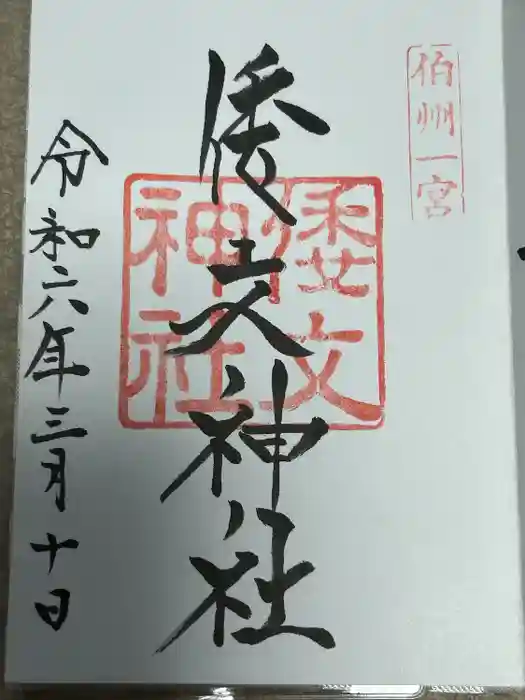 伯州一宮
倭文神社
倭文
神社
令和六年三月十日